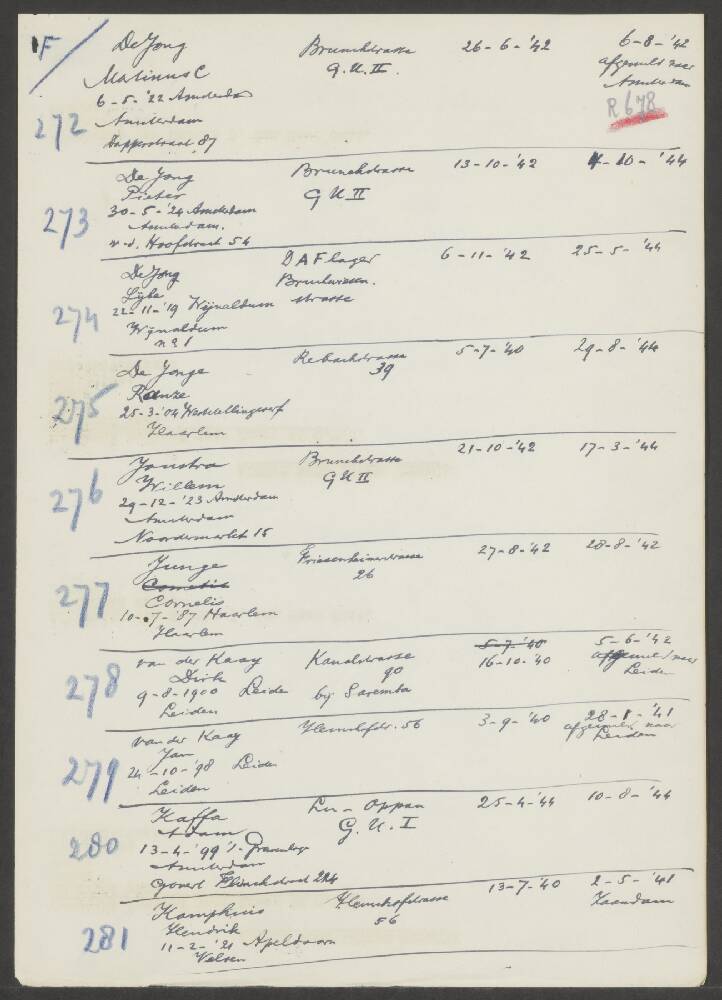 F
272 De Jong Brunckstrasse 26-6-'42 6-8-'42
Matinus C G.U.II. afgemeld naar
6-5-'22 Amsterdam Amsterdam
Amsterdam R 678
Dapperstraat 87
273 De Jong Brunckstrasse 13-10-'42 4-10-'44
Pieter G U II
30-5-'24 Amsterdam
Amsterdam.
v.d. Hoofdstraat 54
274 De Jong DAF lager 6-11-'42 25-5-'44
Sijbe
22-11-'19 Wijnaldum strasse
Wijnaldum
no 1
275 De Jonge 5-7-'40 29-8-'44
Rense 39
25-3-'04 Weststellingwerf
Haarlem
276 Jonstra Brunckstrasse 21-10-'42 17-3-'44
Willem G U II
29-12-'23 Amsterdam
Amsterdam
Noordermarkt 15
277 Junge Friesenheimerstrasse 27-8-'42 28-8-'42
26
Cornelis
10-7-'87 Haarlem
Haarlem
278 van der Kaay Kanalstrasse 5-7-'40 5-6-'42
Dirk 90 16-10-'40 afgemeld naar
9-8-1900 Leiden bij Saremba Leiden
Leiden
279 van der Kaay Hemshofstr. 56 3-9-'40 28-1-'41
Jan afgemeld naar
24-10-'98 Leiden Leiden
Leiden
280 Kaffa Lu-Oppau 25-4-'44 10-8-'44
Adam G.U.I
13-4-'99 's-Gravenhage
Amsterdam
Govert Flinckstraat 224
281 Kamphuis Hemshofstrasse 13-7-'40 2-5-'41
Hendrik 56 Zaandam
11-2-'21 Apeldoorn
Velsen